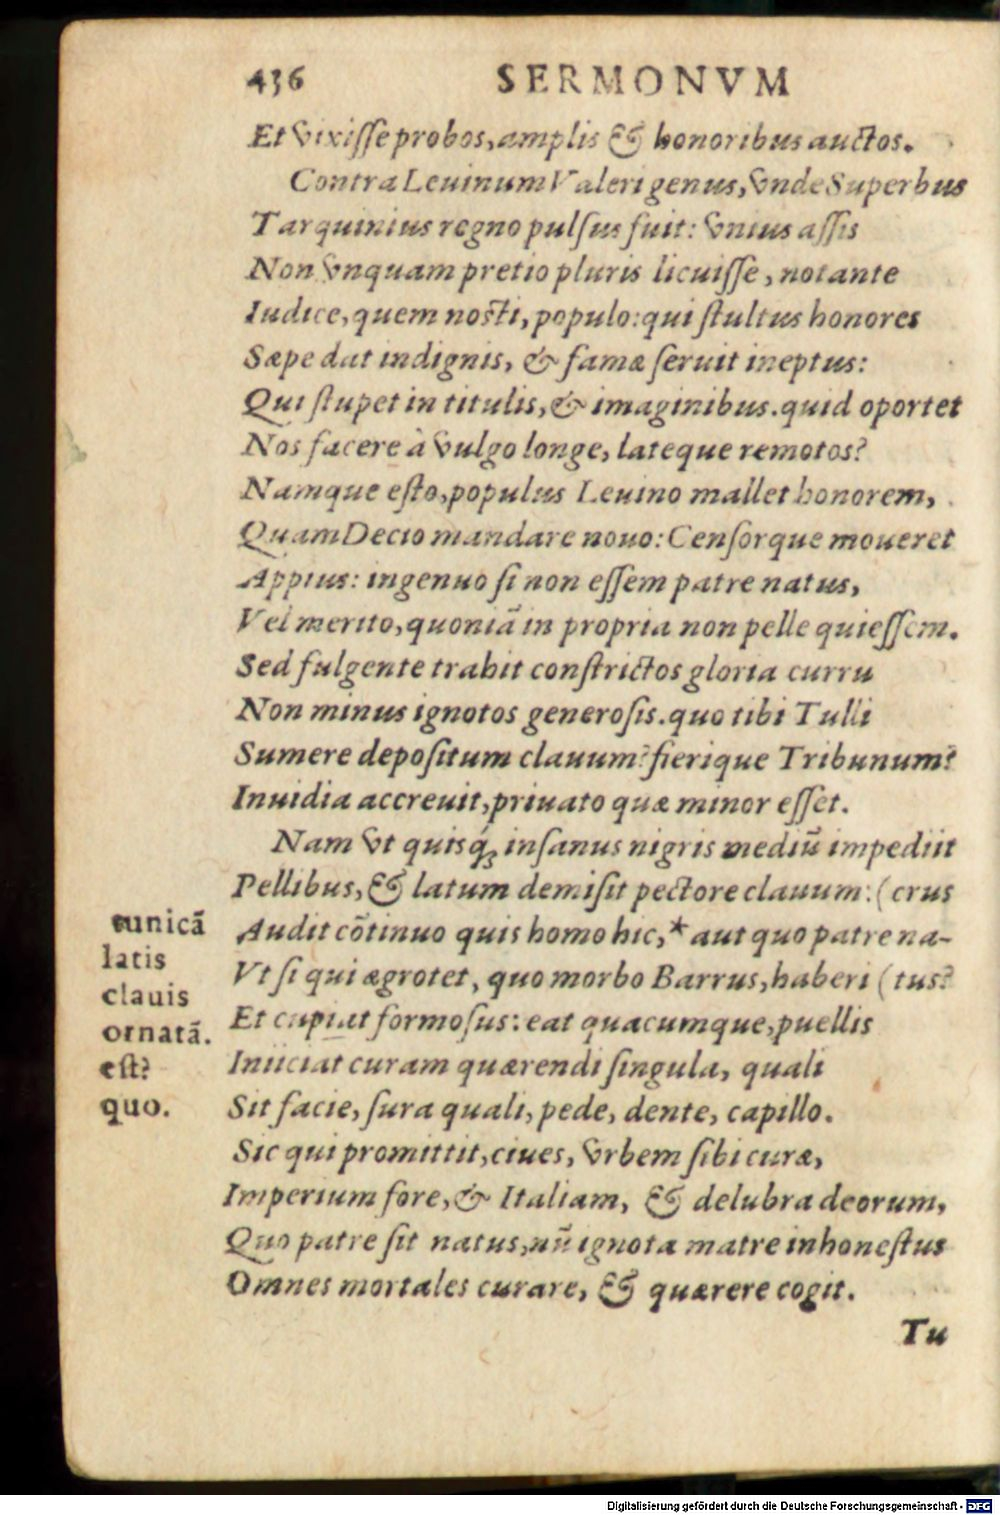 436 SERMONVM
Et vixisse probos, amplis & honoribus auctos.
Contra Leuinum Valeri genus, vnde Superbus
Tarquinius regno pulsus fuit: vnius assis
Non vnquam pretio pluris licuisse, notante
Iudice, quem nosti, populo: qui stultus honores
Sæpe dat indignis, & famæ seruit ineptus:
Qui stupet in titulis, & imaginibus. quid oportet
Nos facere à vulgo longe, lateque remotos?
Namque esto, populus Leuino mallet honorem,
Quam Decio mandare nouo: Censorque moueret
Appius: ingenuo si non essem patre natus,
Vel merito, quoniā in propria non pelle quiessem.
Sed fulgente trahit constrictos gloria curru
Non minus ignotos generosis. quo tibi Tulli
Sumere depositum clauum? fierique Tribunum?
Inuidia accreuit, priuato quæ minor esset.
Nam vt quisq́; insanus nigris mediū impediit
Pellibus, & latum demisit pectore clauum: (crus
Audit cōtinuo quis homo hic,* aut quo patre na-
Vt si qui ægrotet, quo morbo Barrus, haberi (tus?
Et cupiat formosus: eat quacumque, puellis
Iniiciat curam quærendi singula, quali
Sit facie, sura quali, pede, dente, capillo.
Sic qui promittit, ciues, vrbem sibi curæ,
Imperium fore, & Italiam, & delubra deorum,
Quo patre sit natus, nū ignota matre inhonestus
Omnes mortales curare, & quærere cogit.
Tu
tunicā
latis
clauis
ornatā.
est?
quo.
Digitalisierung gefördert durch die Deutsche Forschungsgemeinschaft - DFG